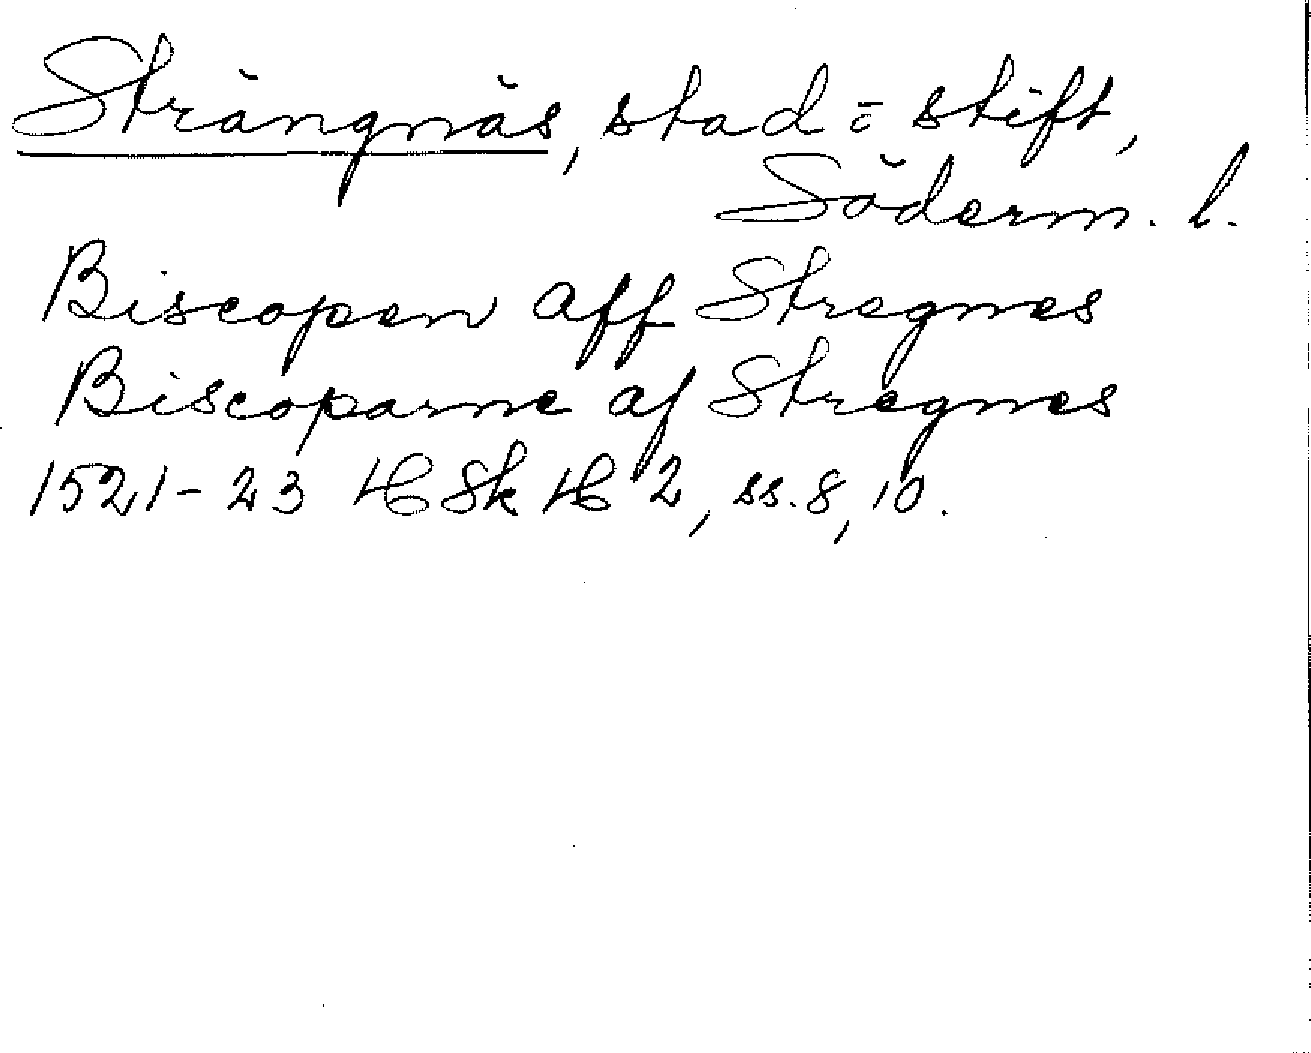 Strängnäs, stad o stift,
Söderm. l.
Biscopen aff Stregnes
Biscoparne af Stregnes
1521-23 HSkH 2, ss. 8, 10.